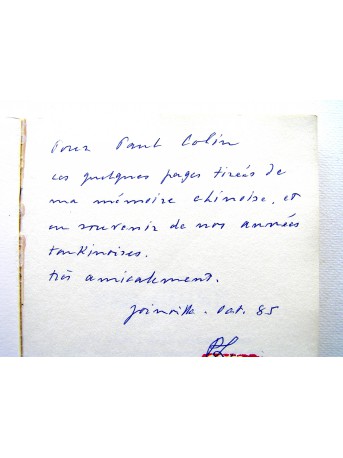 Pour Paul Colin
ces quelques pages tirées de
ma mémoire chinoise, et
en souvenir de nos années
tonkinoises.
très amicalement.
Joinville. Oct. 85